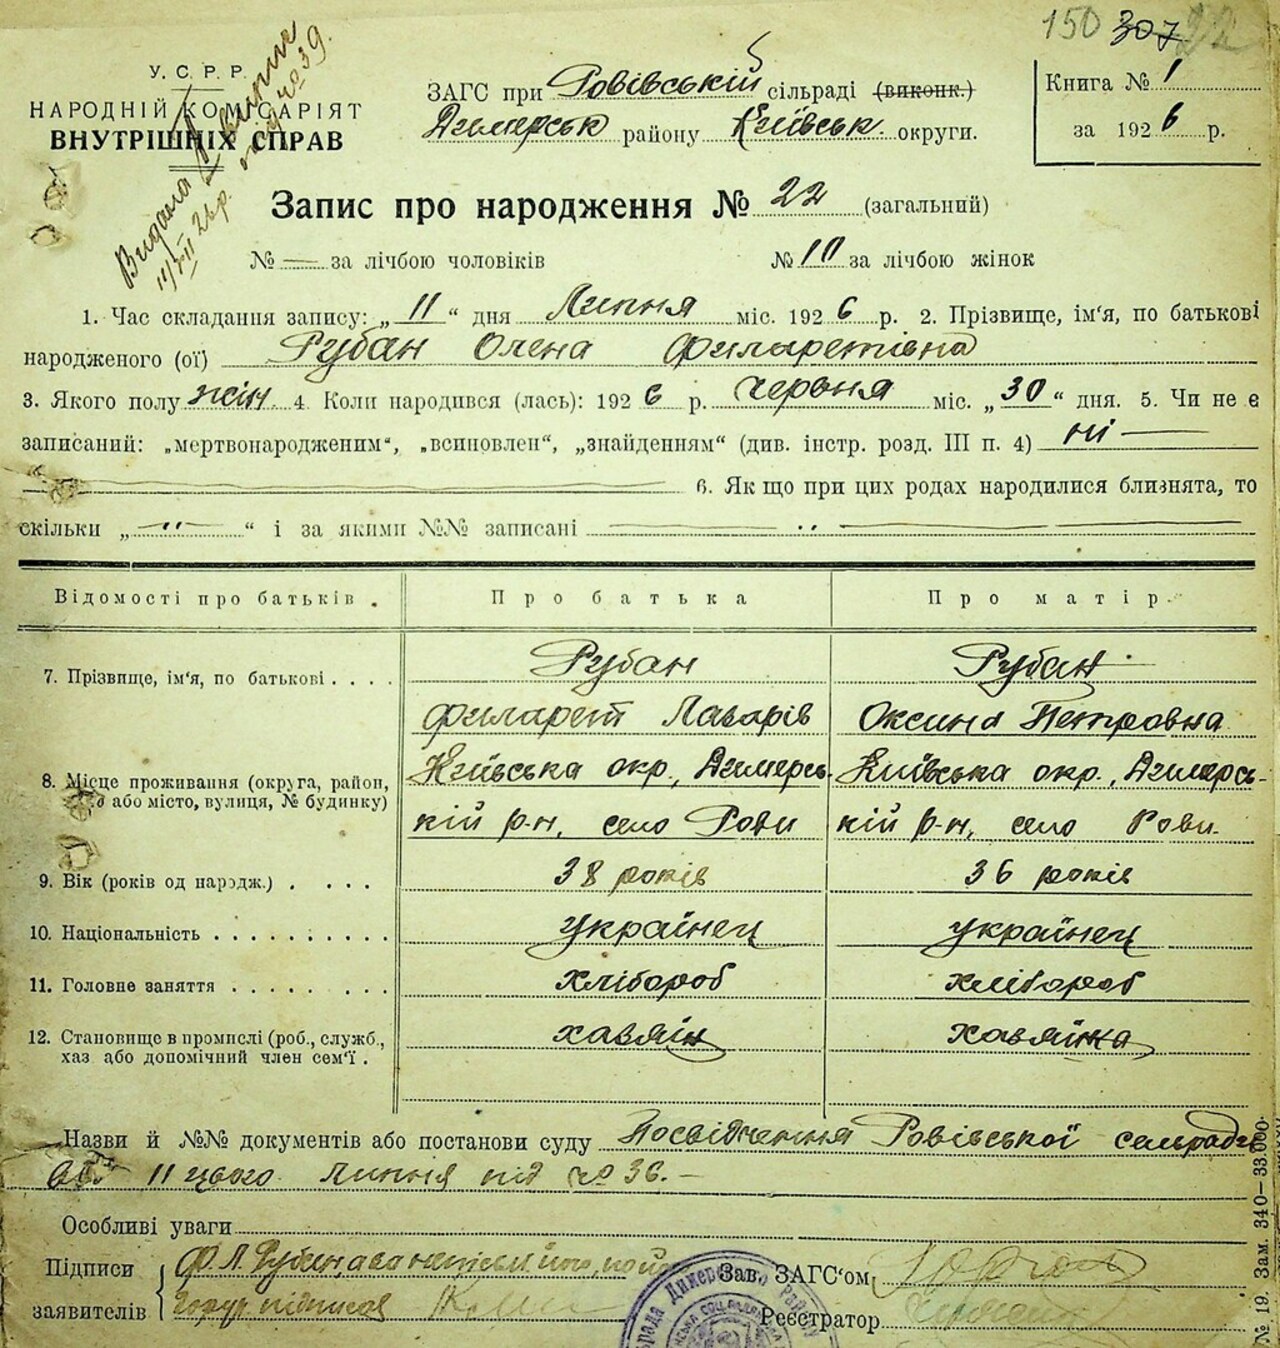 150 307 22
У.С.Р.Р.
НАРОДНІЙ КОМІСАРІЯТ
ВНУТРІШНІХ СПРАВ
Видана
під № 39.
ЗАГС при Ровівській сільраді (виконк.)
Димерськ району Київськ округи.
Книга № 1
за 1926 р.
Запис про народження № 22 (загальний)
№ — за лічбою чоловіків № 10 за лічбою жінок
1. Час складання запису: „11“ дня Липня міс. 1926 р. 2. Прізвище, ім'я, по батькові
народженого (ої) Рубан Олена Филаретівна
3. Якого полу жін. 4. Коли народився (лась): 1926 р. червня міс. „30“ дня. 5. Чи не є
записаний: „мертвонародженим“, „всиновлен“, „знайденням“ (див. інстр. розд. III п. 4) ні —
6. Як що при цих родах народилися близнята, то
скільки „ — “ і за якими №№ записані —
Відомості про батьків. Про батька Про матір.
7. Прізвище, ім'я, по батькові . . . . Рубан Рубан
Филарет Лазарів Оксина Петровна
8. Місце проживання (округа, район, Київська окр., Димерсь- Київська окр., Димерсь-
або місто, вулиця, № будинку) кій р-н, село Рови кій р-н, село Рови.
9. Вік (років од народж.) . . . . 38 років 36 років
10. Національність . . . . . . . . . . українец українец
11. Головне заняття . . . . . . . . хлібороб хлібороб
12. Становище в промислі (роб., служб., хазяїн хазяйка
хаз або допомічний член сем'ї .
Назви й №№ документів або постанови суду Посвідчення Ровівської
11 цього липня під № 36. —
Особливі уваги
Підписи Ф. Л. Рубан, а за
заявителів підписав
Зав. ЗАГС'ом
Реєстратор
№ 19. Зам. 340—33.000.